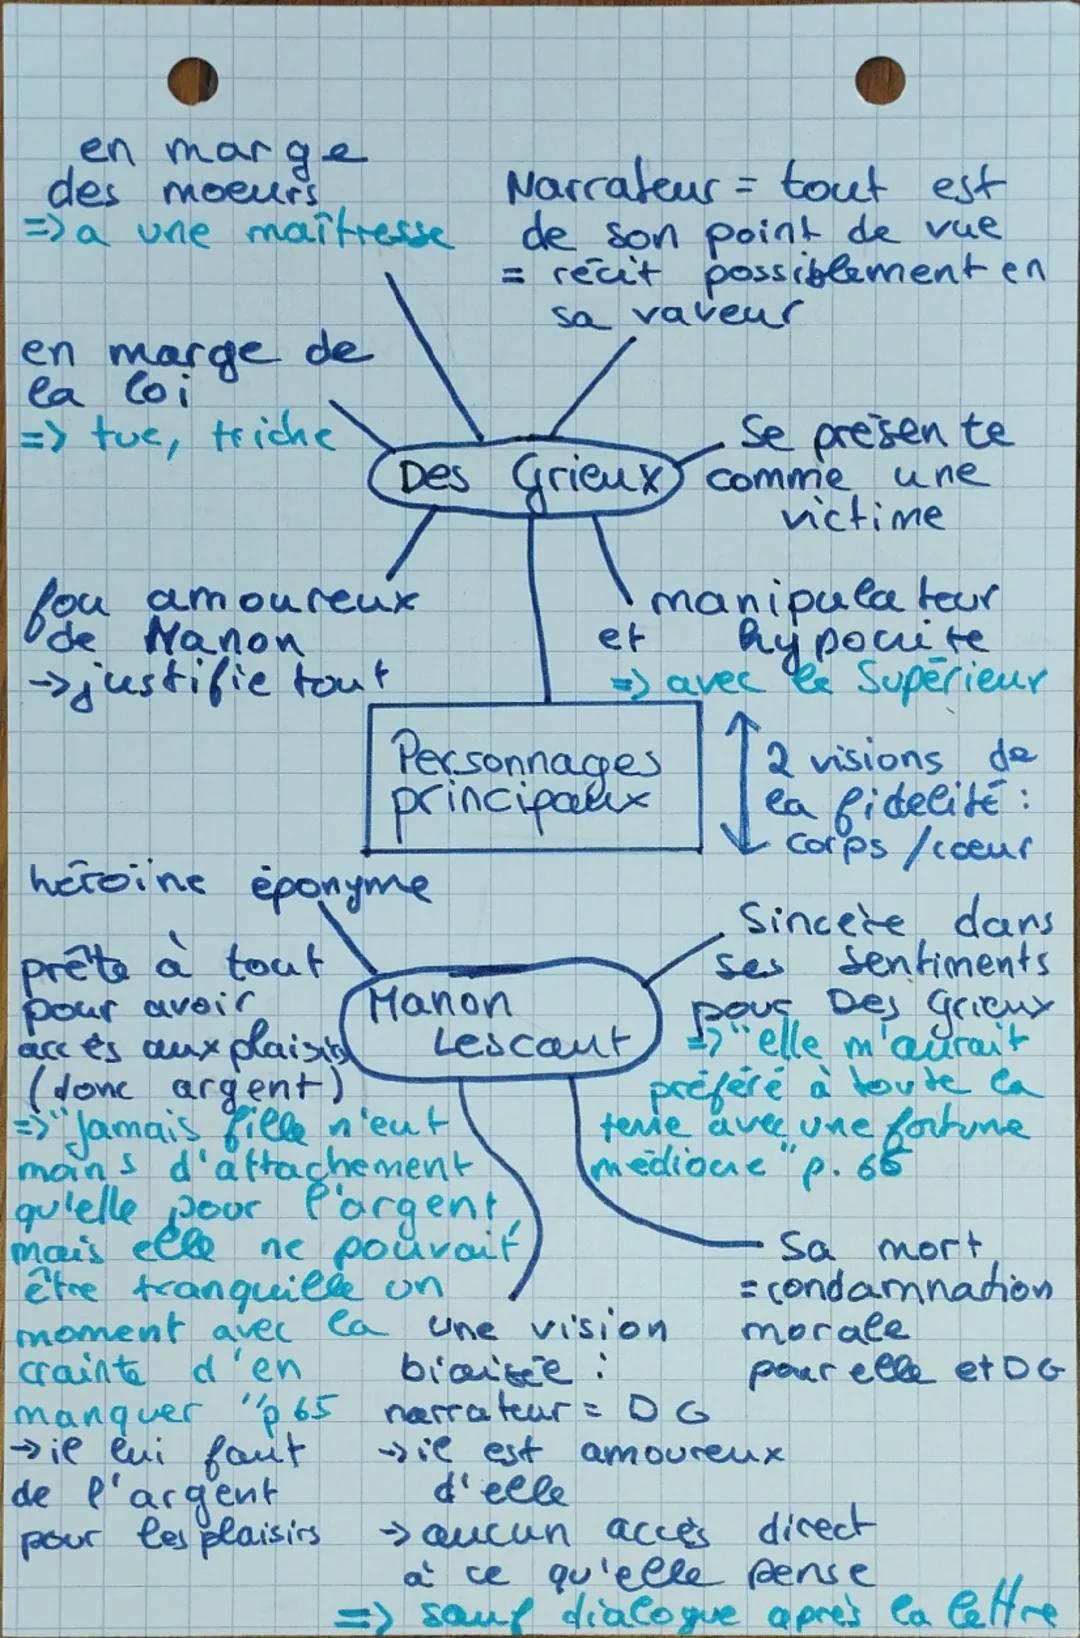 en marge
des moeurs
=> a une maîtresse
Narrateur = tout est
de son point de vue
= récit possiblement en
sa vaveur
en marge de
la loi
=> tue, triche
Des Grieux
Se présente
comme une
victime
fou amoureux
de Manon
-> justifie tout
manipulateur
et hypocrite
=> avec le Supérieur
Personnages
principaux
2 visions de
la fidelité :
corps / coeur
héroïne éponyme
prête à tout
pour avoir
accès aux plaisirs
(donc argent)
=> "Jamais fille n'eut
moins d'attachement
qu'elle pour l'argent,
mais elle ne pouvait
être tranquille un
moment avec la
crainte d'en
manquer "p 65
-> il lui faut
de l'argent
pour les plaisirs
Manon
Lescaut
Sincère dans
ses sentiments
pour Des Grieux
=> "elle m'aurait
préféré à toute la
terre avec une fortune
médiocre" p. 66
Sa mort
= condamnation
morale
pour elle et DG
une vision
biaisée :
narrateur = DG
-> il est amoureux
d'elle
-> aucun accès direct
à ce qu'elle pense
=> sauf dialogue après la lettre